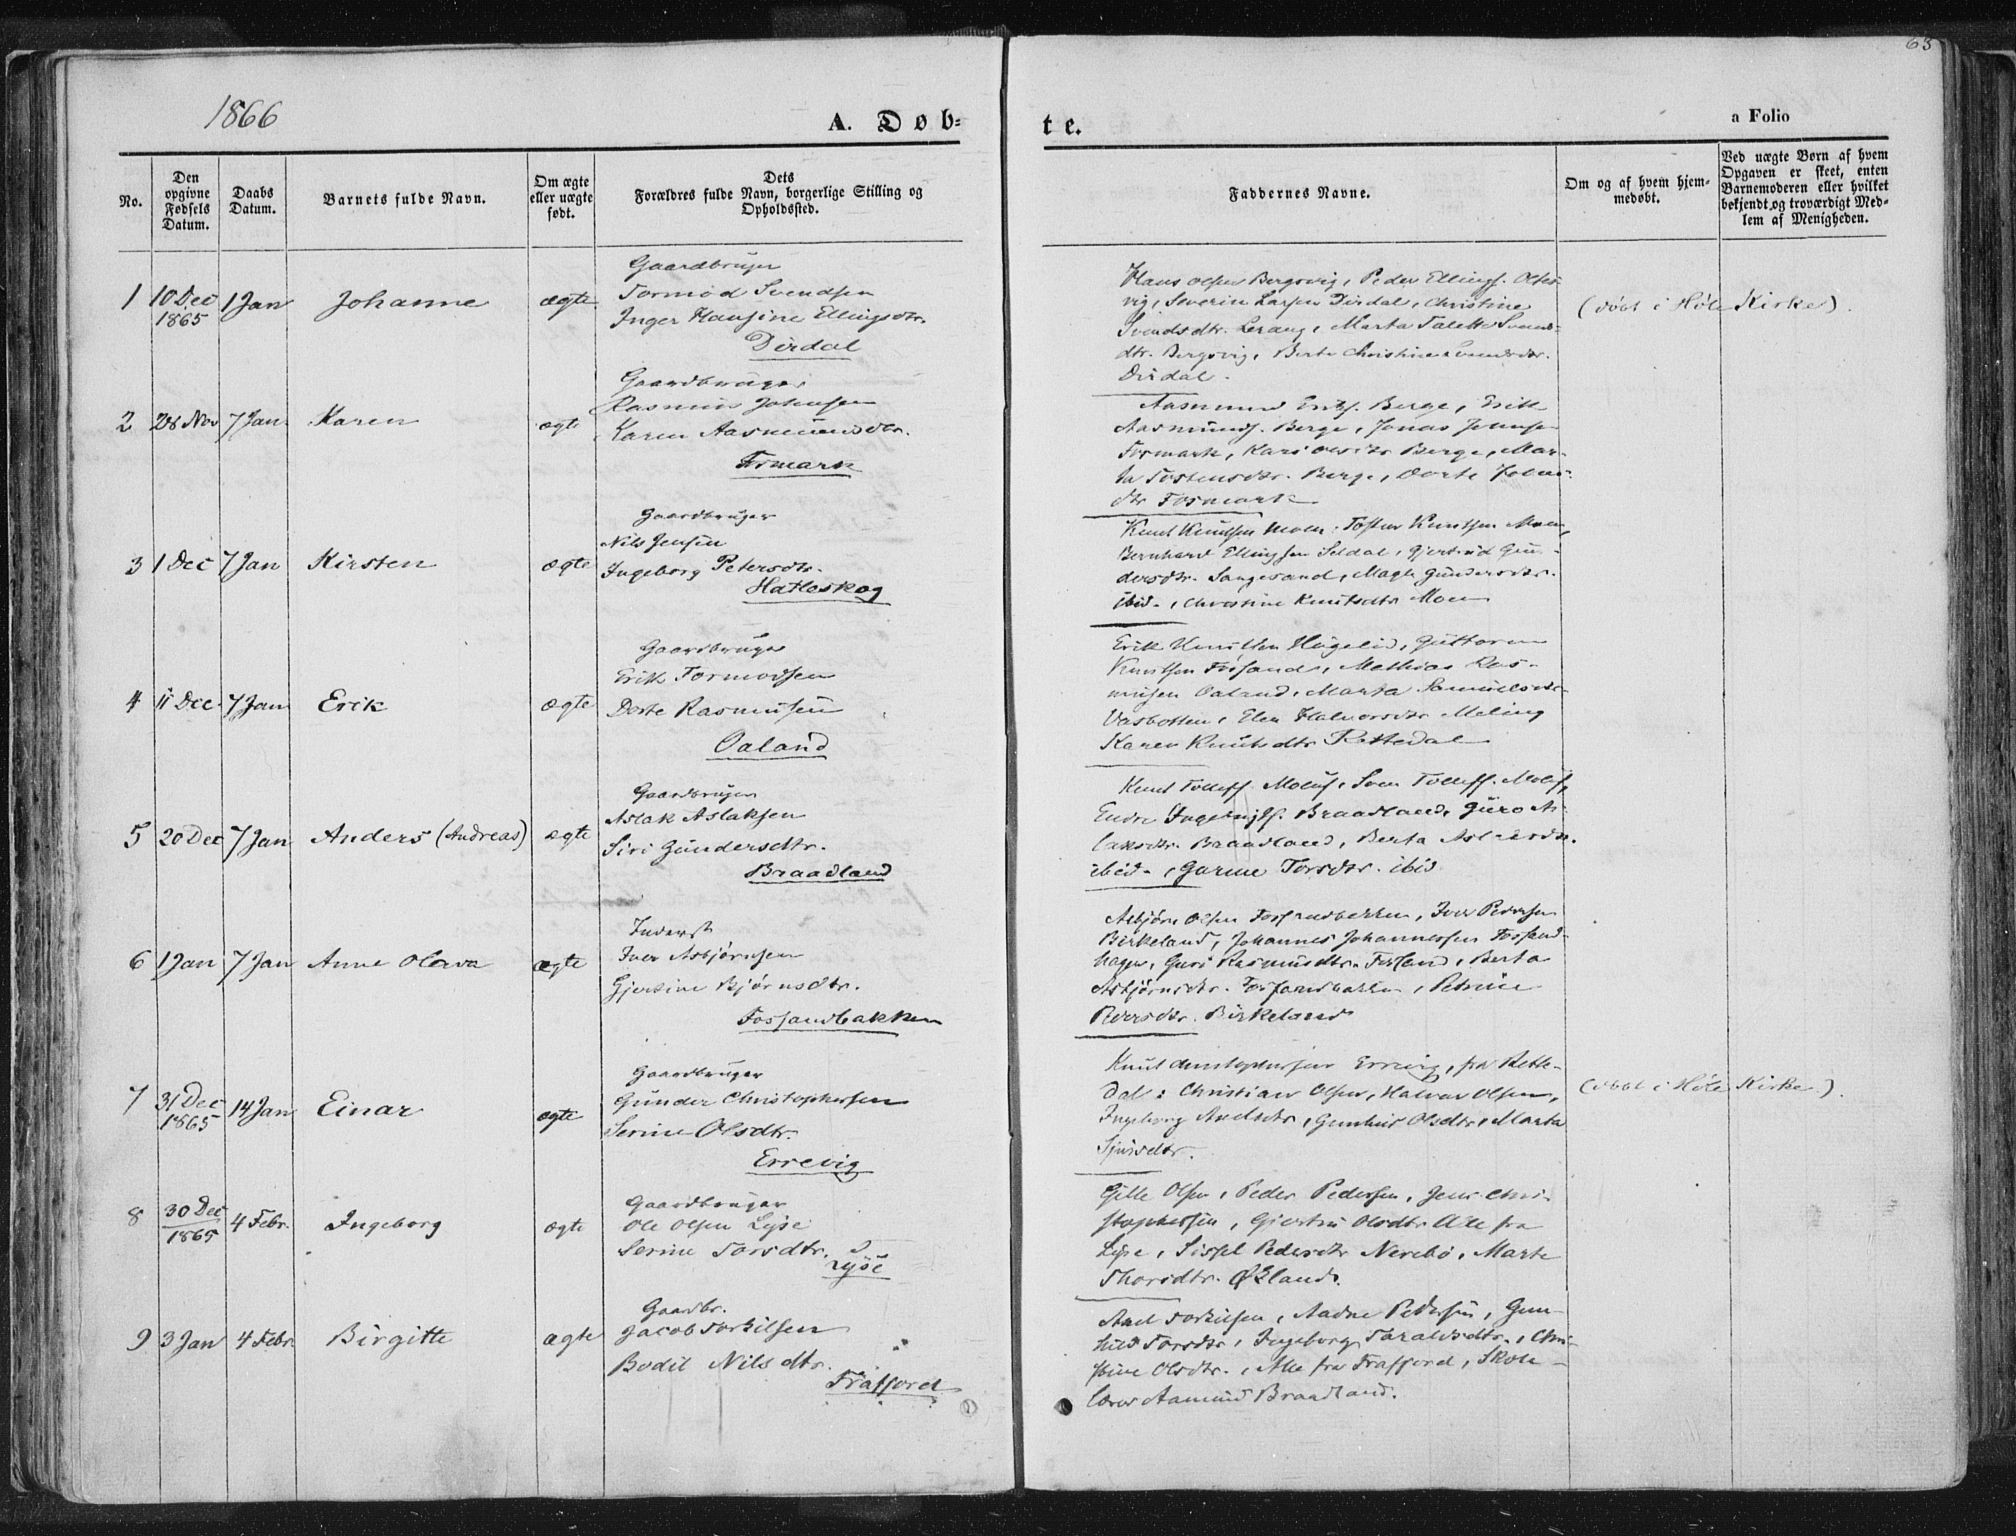 63
1866
A. Døb-
te.
a Folio
No.
Den opgivne Fødsels Datum.
Daabs Datum.
Barnets fulde Navn.
Om ægte eller uægte født.
Dets Forældres fulde Navn, borgerlige Stilling og Opholdssted.
Faddernes Navne.
Om og af hvem hjemmedøbt.
Ved uægte Børn af hvem Opgaven er skeet, enten Barnemoderen eller hvilket bekjendt og troværdigt Medlem af Menigheden.
1 10 Dec 1865 1 Jan Johanne ægte
Gaardbruger
Tormod Svendsen
Inger Hansine Ellingsdtr.
Dirdal
Hans Olsen Bergsvig, Peder Ellings. Oltes-
vig, Severin Larsen Dirdal, Christine
Svendsdtr. Lerang, Marta Talette Svends-
dtr. Bergsvig, Berte Christine Svendsdtr.
Dirdal.
(døbt i Høle Kirke).
2 28 Nov 7 Jan Karen ægte
Gaardbruger
Rasmus Johnsen
Karen Aasmundsdtr.
Fosmark
Aasmund Eriks. Berge, Erik
Aasmunds. Berge, Jonas Johnsen
Fosmark, Kari Olsdtr Berge, Mar-
ta Tostensdtr. Berge, Dorte Johns-
dtr Fosmark
3 1 Dec 7 Jan Kirsten ægte
Gaardbruger
Nils Jensen
Ingeborg Petersdtr.
Hatleskog
Knut Knutsen Moen, Tosten Knutsen Moen,
Bernhard Ellingsen Seldal, Gjertrud Gun-
dersdtr. Songesand, Magla Gundersdtr.
ibid., Christine Knutsdtr Moen
4 11 Dec 7 Jan Erik ægte
Gaardbruger
Erik Tormodsen
Dorte Rasmusen
Oaland
Erik Knutsen Hågelid, Guttorm
Knutsen Fossand, Mathias Ras-
musen Oaland, Marta Samuelsdtr
Vasbotten, Elen Halvorsdtr Meling
Karen Knutsdtr Rettedal
5 20 Dec 7 Jan Anders (Andreas) ægte
Gaardbruger
Aslak Aslaksen
Siri Gundersdtr.
Braadland
Knut Tollefs. Molaug, Sven Tollefs.
Endre Ingebrigts. Braadland, Guro As-
laksdtr. Braadland, Berta Aslaksdtr.
ibid., Gurine Torsdtr. ibid
6 1 Jan 7 Jan Anne Olava ægte
Inderst
Iver Asbjørnsen
Gjertine Bjørnsdtr.
Fossandbakken
Asbjørn Olsen Fossandbakken, Iver Pedersen
Birkeland, Johannes Johannessen Fossand-
hagen, Guri Rasmusdtr. Fossand, Berta
Asbjørnsdtr. Fossandbakken, Petrine
Pedersdtr. Birkeland
7 31 Dec 1865 14 Jan Einar ægte
Gaardbruger
Gunder Christophersen
Serine Olsdtr.
Errevig
Knut Christophersen Errevig, fra Rette-
dal: Christian Olsen, Halvor Olsen,
Ingeborg Axelsdtr, Gunhild Olsdtr, Marta
Sjursdtr.
(døbt i Høle Kirke).
8 30 Dec 1865 4 Febr. Ingeborg ægte
Gaardbruger
Ole Olsen Lyse
Serine Torsdtr.
Lyse
Gitle Olsen, Peder Pedersen, Jens Chri-
stophersen, Gjertru Olsdtr. Alle fra
Lyse, Sissel Pedersdtr Nerebø, Marte
Thorsdtr. Øklands.
9 3 Jan 4 Febr. Birgitte ægte
Gaardbr.
Jacob Torkilsen
Bodil Nilsdtr.
Frafjord
Axel Torkilsen, Aadne Pedersen, Gun-
hild Torsdtr, Ingeborg Taraldsdtr., Chri-
stine Olsdtr., Alle fra Frafjord, Skole-
lærer Aamund Braadland.